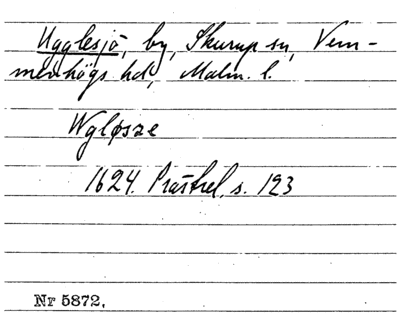 Ugglesjö, by, Skurup sn, Vem-
menhögs hd, Malm. l.
Wgløsze
1624. Prästrel. s. 123
Nr 5872.